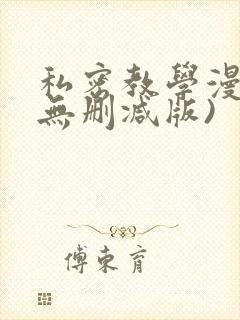 私密教學漫
無刪减版)
傅東育